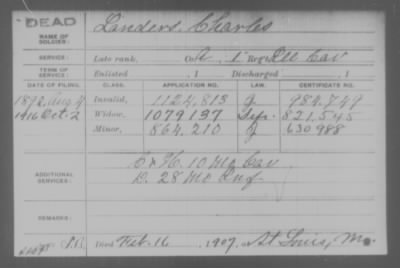 DEAD
NAME OF SOLDIER: Landers, Charles
SERVICE: Late rank, Co. A, 1 Reg't Cav
TERM OF SERVICE: Enlisted , 1 Discharged , 1
DATE OF FILING. CLASS. APPLICATION NO. LAW. CERTIFICATE NO.
1892, Aug 4 Invalid, 1124,813 J 984,749
1916 Oct. 2 Widow, 1079137 821,545
Minor, 864,210 J 630988
ADDITIONAL SERVICES: C & H. 10 Mo Cav
D. 28 Mo Inf
REMARKS:
Died Feb. 16 1907, at St Louis, Mo.